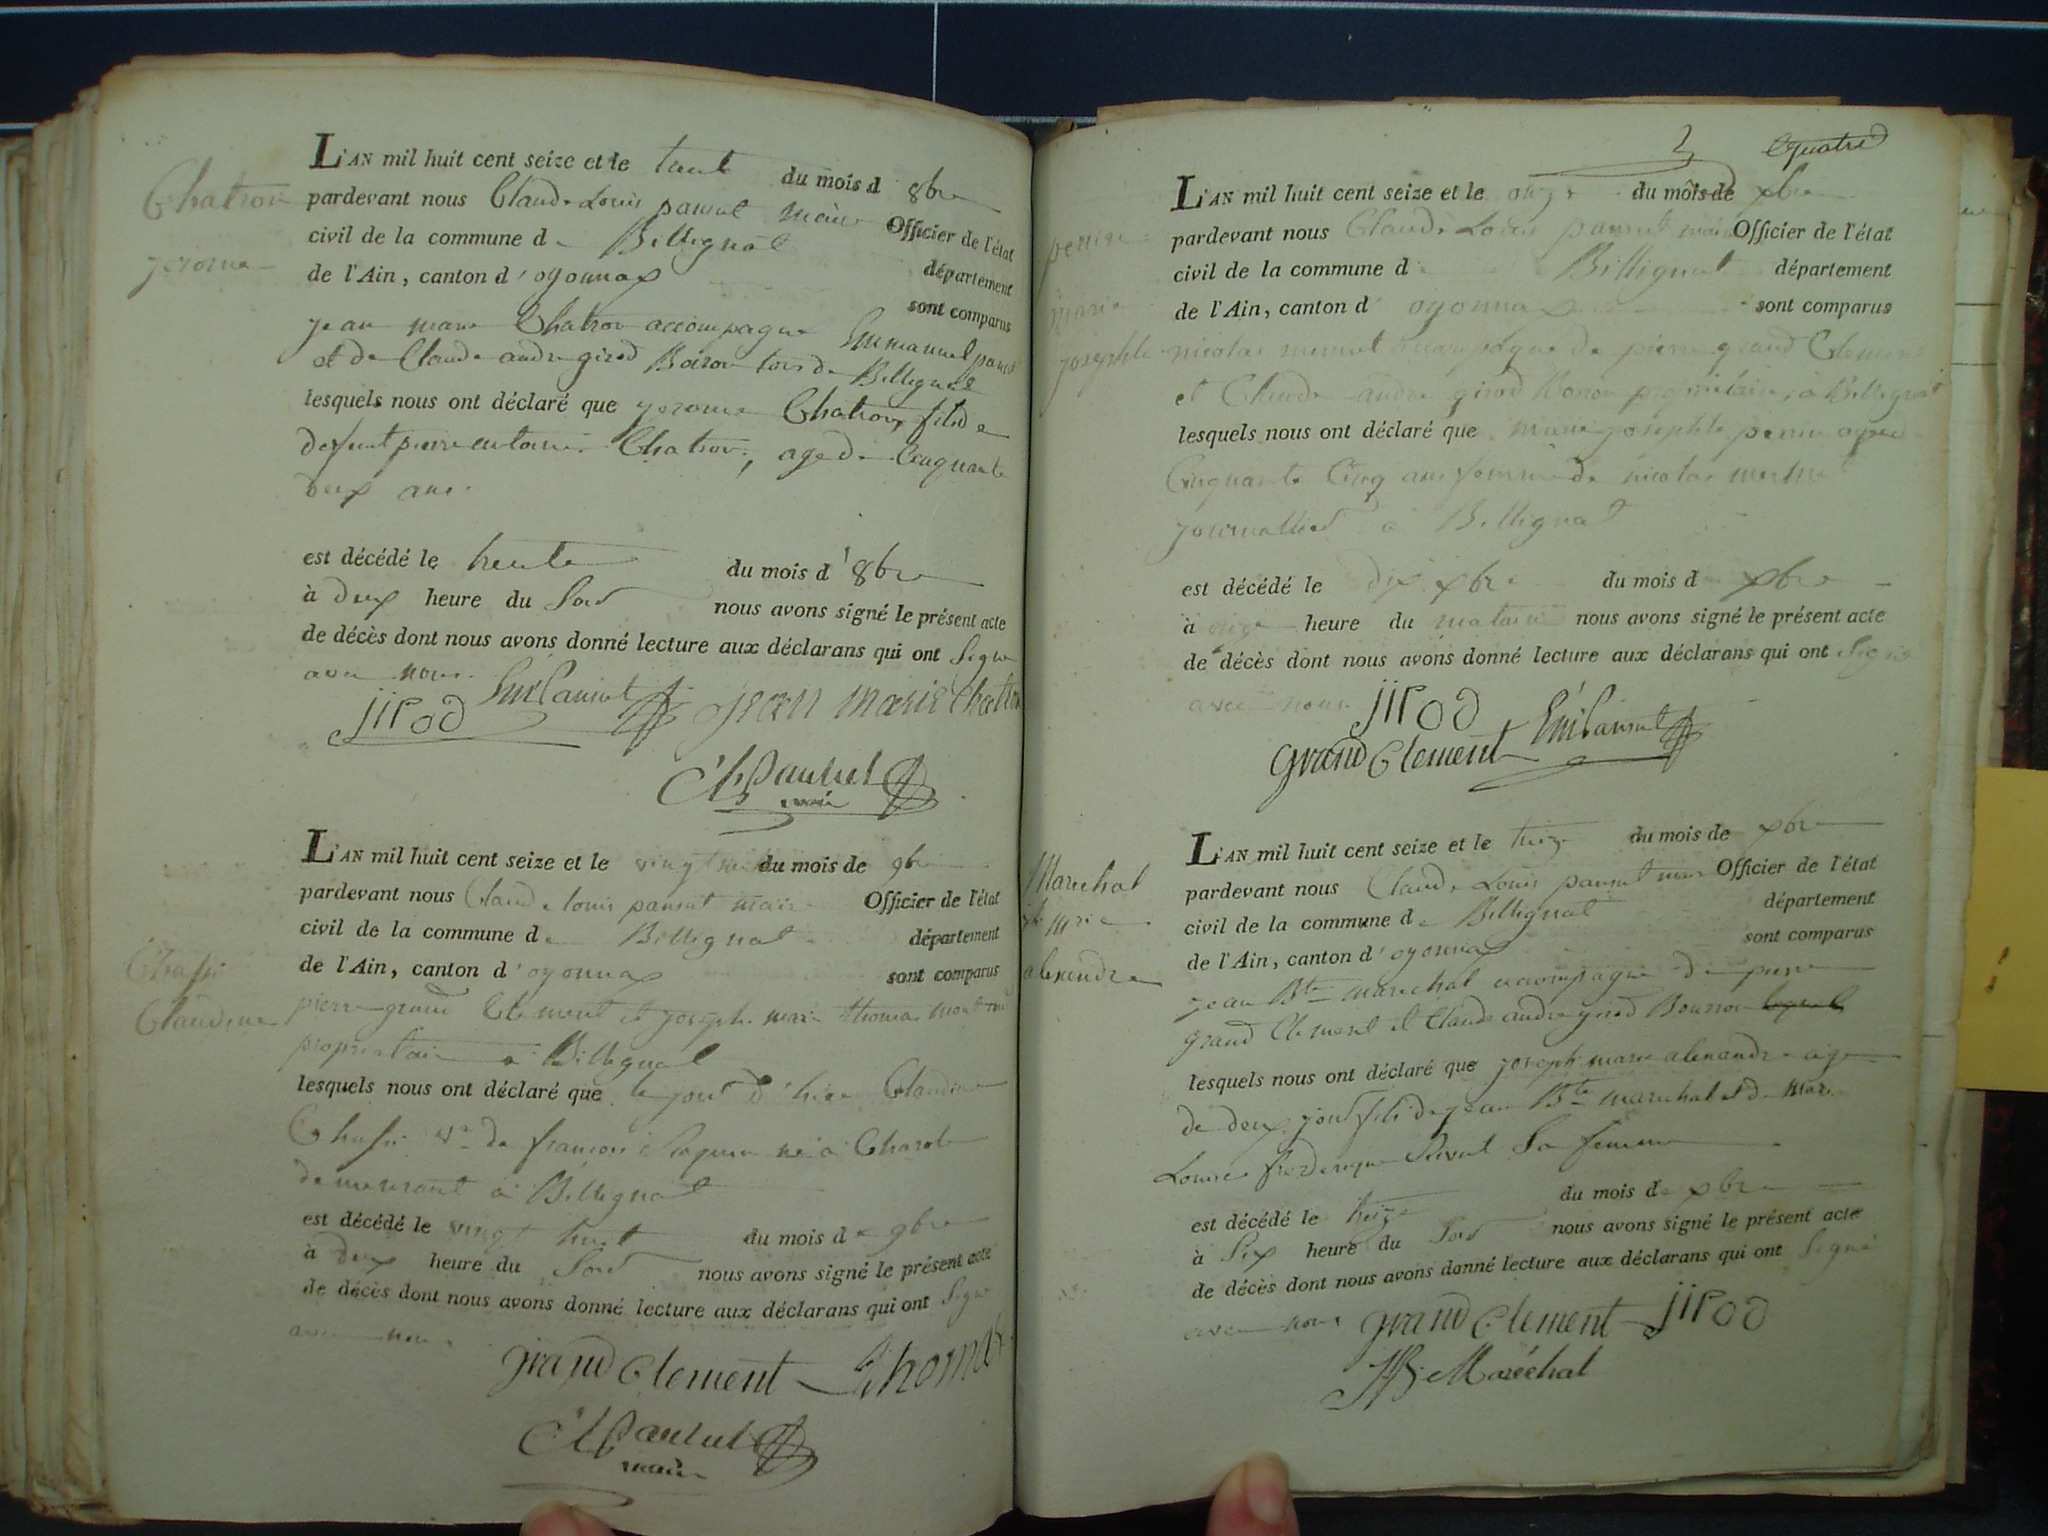 Chatron
jerome
L'AN mil huit cent seize et le trente du mois d 8bre
pardevant nous Claude Louis pansut maire Officier de l'état
civil de la commune de Billignat département
de l'Ain, canton d'oyonnax sont comparus
jean marie Chatron accompagne Emmanuel pansut
et de Claude andre girod Boiron tous de Billignat
lesquels nous ont déclaré que jerome Chatron, fils de
defunt pierre Chatron, age de Cinquante
deux ans.
est décédé le trente du mois d'8bre
à deux heure du soir nous avons signé le présent acte
de décès dont nous avons donné lecture aux déclarans qui ont signe
avec nous.
jirod Em Pansut jean marie Chatron
Cl Pansut
maire
Chassi
Claudine
L'AN mil huit cent seize et le vingt neuf du mois de 9bre
pardevant nous Claude louis pansut maire Officier de l'état
civil de la commune de Billignat département
de l'Ain, canton d'oyonnax sont comparus
pierre grand Clement et joseph marie thomas
proprietaire a Billignat
lesquels nous ont déclaré que le jour d'hier Claudine
Chassi ve de francois né a
demeurant à Billignat
est décédé le vingt huit du mois de 9bre
à deux heure du soir nous avons signé le présent acte
de décès dont nous avons donné lecture aux déclarans qui ont signe
avec nous.
grand Clement Thomas
Cl Pansut
maire
quatre
perrin
marie
josephte
L'AN mil huit cent seize et le onze du mois de xbre
pardevant nous Claude Louis pansut maire Officier de l'état
civil de la commune de Billignat département
de l'Ain, canton d'oyonnax sont comparus
nicolas mermet accompagne de pierre grand Clement
et Claude andre girod Boiron proprietaire, à Billignat
lesquels nous ont déclaré que marie josephte perrin agee
Cinquante Cinq ans femme de nicolas mermet
journallier a Billignat
est décédé le dix xbre du mois d xbre
à onze heure du matain nous avons signé le présent acte
de décès dont nous avons donné lecture aux déclarans qui ont signé
avec nous. jirod
grand Clement Em Pansut
Marechal
marie
alexendre
L'AN mil huit cent seize et le treize du mois de xbre
pardevant nous Claude Louis pansut maire Officier de l'état
civil de la commune de Billignat département
de l'Ain, canton d'oyonnax sont comparus
jean Bte marechal accompagne de pierre
grand Clement et Claude andre girod Boirron
lesquels nous ont déclaré que joseph marie alexandre age
de deux jour fils de jean Bte marechal et de marie
Louise frederique sa femme
est décédé le treize du mois de xbre
à Six heure du soir nous avons signé le présent acte
de décès dont nous avons donné lecture aux déclarans qui ont signé
avec nous grand Clement jirod
JB Maréchal